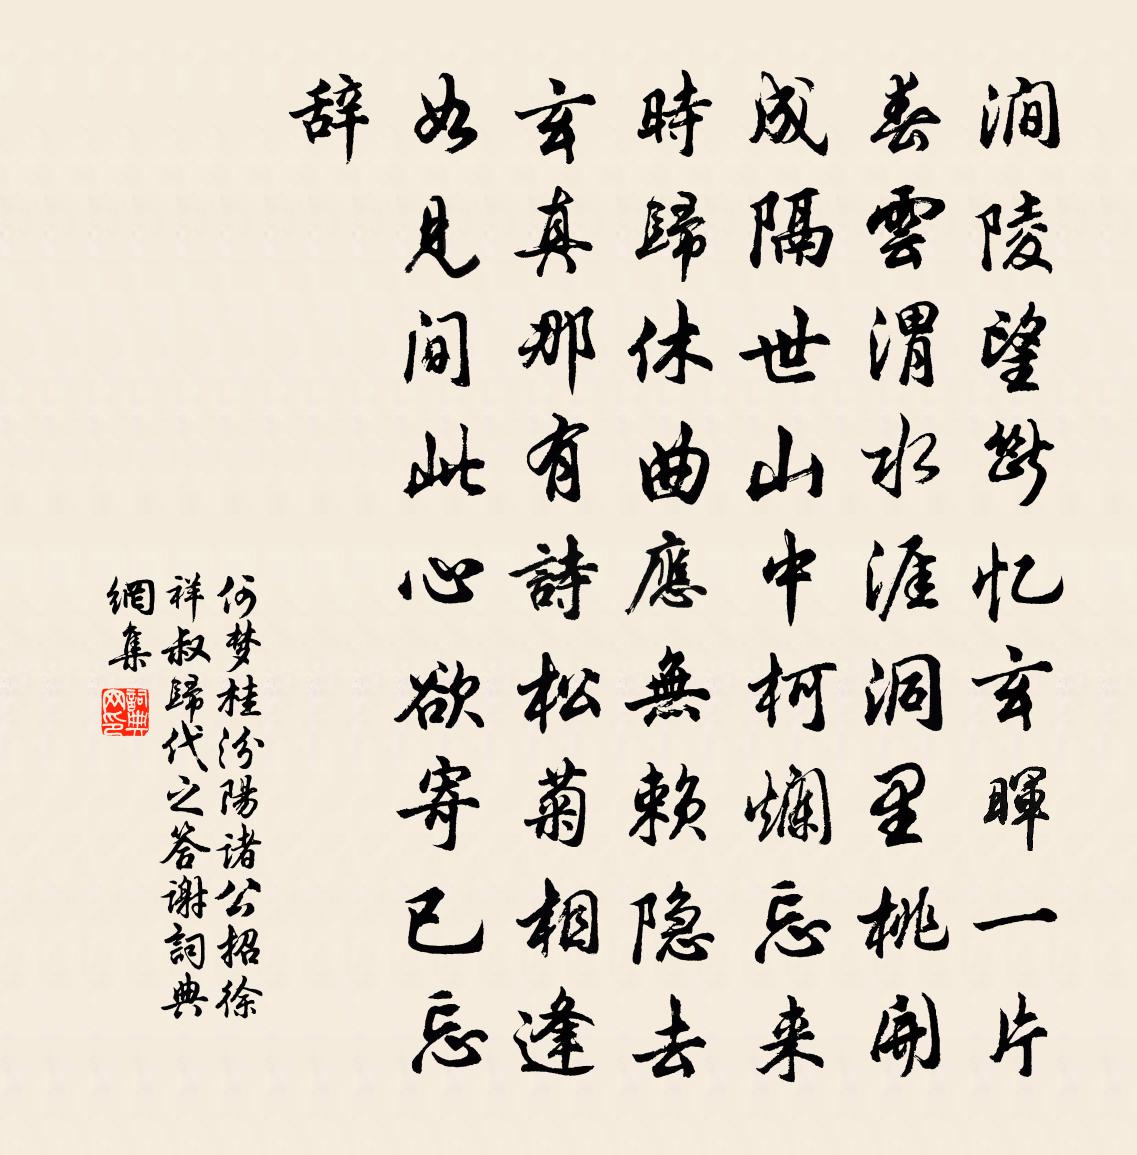 澗陵望斷忆玄暉一片
春雲渭水涯洞里桃開
成隔世山中柯爛忘来
時歸休曲應無赖隐去
玄真那有詩松菊相逢
如見间此心欲寄已忘
辞
何梦桂汾陽诸公招徐
祥叔歸代之答谢詞典
網集
詞典